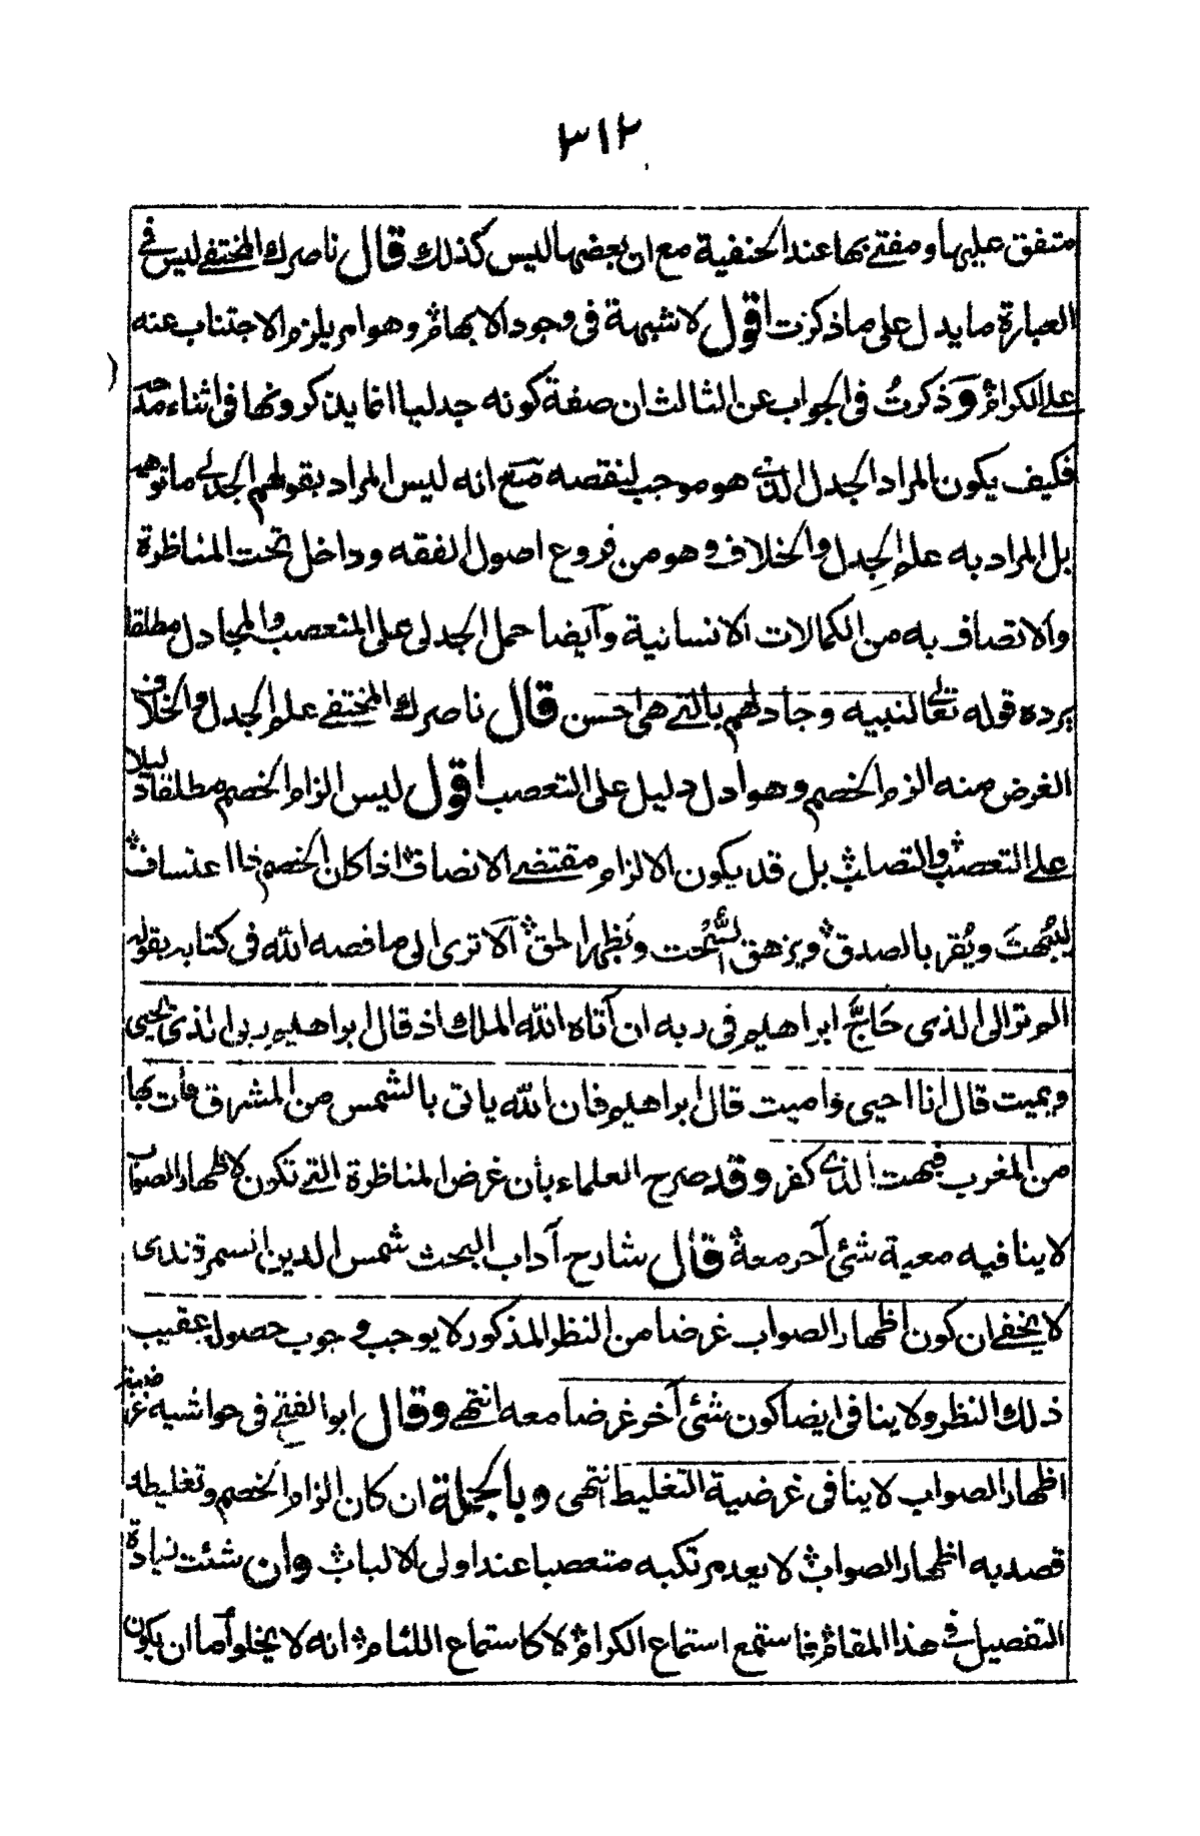 ٣١٢
متفق عليها ومفتى بها عند الحنفية مع ان بعضها ليس كذلك قال ناصرك المختفى ليس فى
العبارة ما يدل على ما ذكرت اقول لا شبهة فى وجود الابهام وهو امر يلزم الاجتناب عنه
على الكرام وذكرتُ فى الجواب عن الثالث ان صفة كونه جدليا انما يذكرونها فى اثناء مدحه
فكيف يكون المراد الجدل الذى هو موجب لنقصه مع انه ليس المراد بقولهم الجدلى ما توهمه
بل المراد به علم الجدل والخلاف وهو من فروع اصول الفقه وداخل تحت المناظرة
والاتصاف به من الكمالات الانسانية وأيضا حمل الجدلى على المتعصب والمجادل مطلقا
يرده قوله تعالى لنبيه وجادلهم بالتى هى احسن قال ناصرك المختفى علم الجدل والخلاف
الغرض منه الزام الخصم وهو أدل دليل على التعصب اقول ليس الزام الخصم مطلقا دليلا
على التعصب والتصلب بل قد يكون الالزام مقتضى الانصاف اذا كان الخصم ذا اعتساف
ليُبْهَتَ ويُقر بالصدق ويزهق السُّحت ويَظهر الحق ألا ترى الى ما قصه الله فى كتابه بقوله
الم تر الى الذى حَاجَّ ابراهيم فى ربه ان آتاه الله الملك اذ قال ابراهيم ربى الذى يحيى
ويميت قال انا احيى واميت قال ابراهيم فان الله ياتى بالشمس من المشرق فأت بها
من المغرب فبهت الذى كفر وقد صرح العلماء بأن غرض المناظرة التى تكون لاظهار الصواب
لا ينافيه معية شئ آخر معه قال شارح آداب البحث شمس الدين السمرقندى
لا يخفى ان كون اظهار الصواب غرضا من النظر المذكور لا يوجب وجوب حصول عقيب
ذلك النظر ولا ينافى ايضا كون شئ آخر غرضا معه انتهى وقال ابو الفتح فى حواشيه غرضية
اظهار الصواب لا ينافى غرضية التغليط انتهى وبالجملة ان كان الزام الخصم وتغليطه
قصد به اظهار الصواب لا يعد مرتكبه متعصبا عند اولى الالباب وان شئت زيادة
التفصيل فى هذا المقام فاستمع استماع الكرام لا كاستماع اللئام انه لا يخلو أما ان يكون